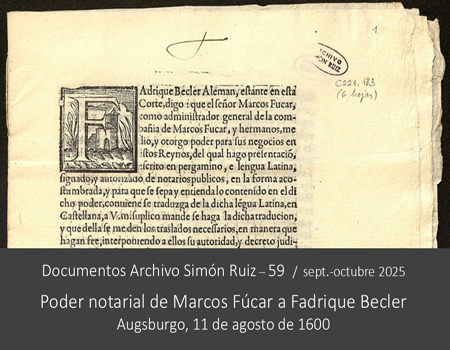 1
ARCHIVO
SIMON RUIZ
C221, 183
(6 hojas)
FAdrique Becler Aleman, estante en esta
Corte, digo: que el señor Marcos Fucar,
como administrador general de la com-
pañia de Marcos Fucar, y hermanos, me
dio, y otorgo poder para sus negocios en
estos Reynos, del qual hago presentació,
escrito en pergamino, e lengua Latina,
signado, y autorizado de notarios publicos, en la forma acos
tumbrada, y para que se sepa y entienda lo contenido en el di
cho poder, conuiene se traduzga de la dicha légua Latina, en
Castellana, a V.m. suplico mande se haga la dicha traducion,
y que della se me den los traslados necessarios, en manera que
hagan fee, interponiendo a ellos su autoridad, y decreto judi-
Documentos Archivo Simón Ruiz – 59 / sept.-octubre 2025
Poder notarial de Marcos Fúcar a Fadrique Becler
Augsburgo, 11 de agosto de 1600